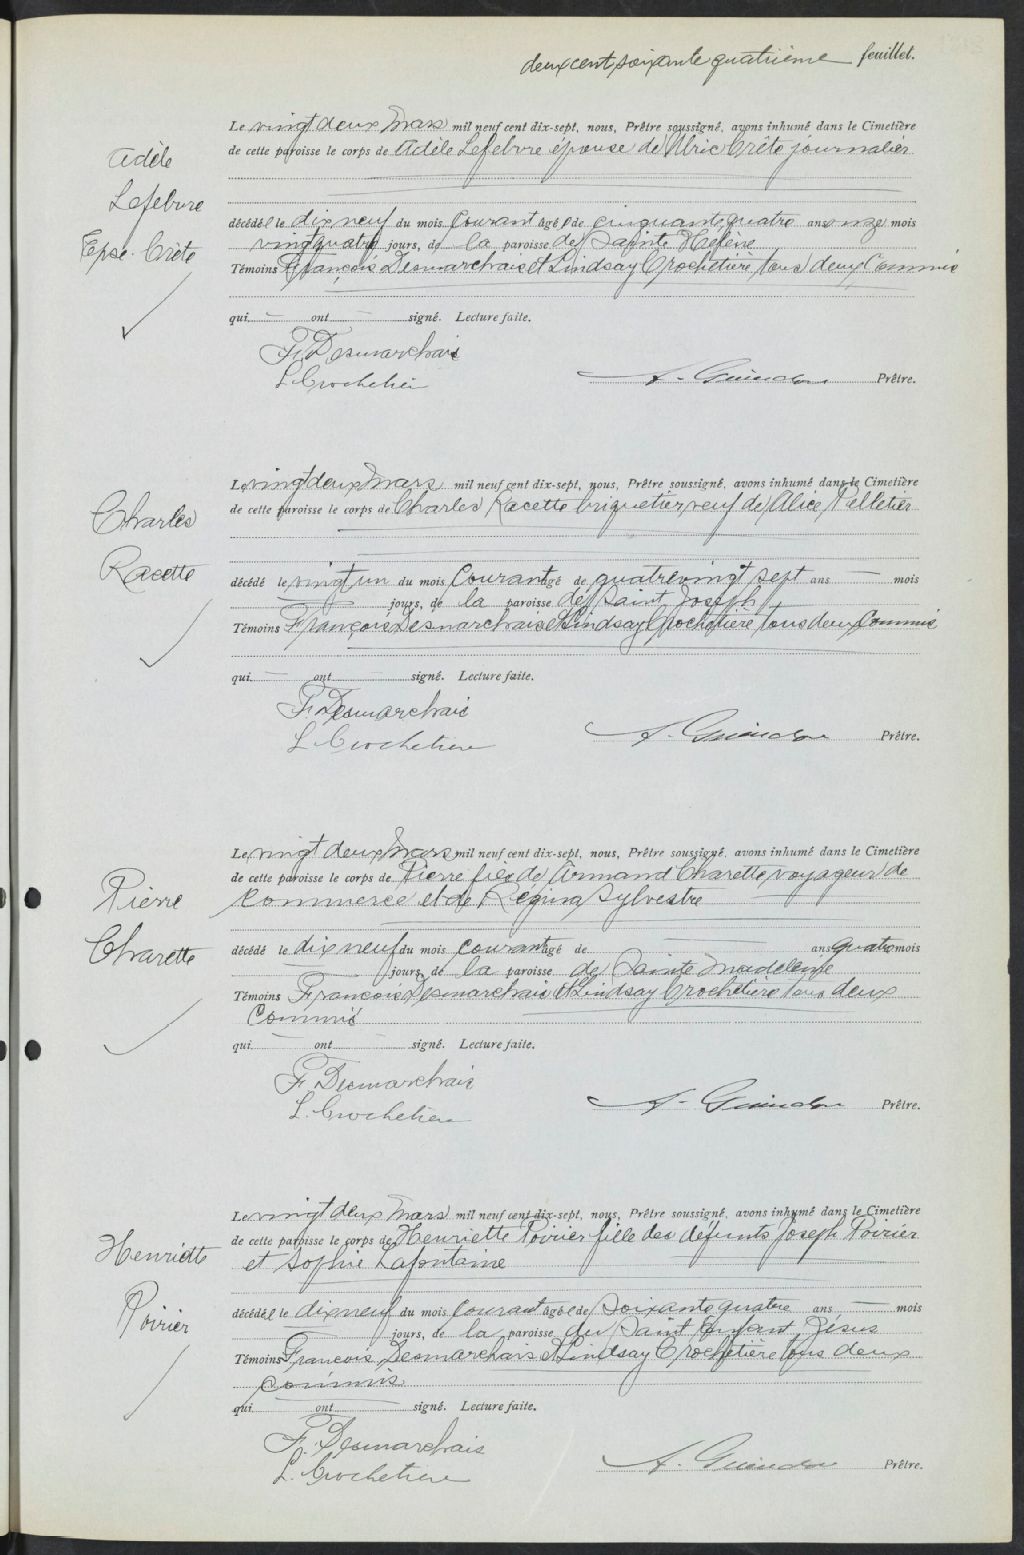 deux cent soixante quatrième feuillet.
Le vingt deux Mars mil neuf cent dix-sept, nous, Prêtre soussigné, avons inhumé dans le Cimetière
de cette paroisse le corps de Adèle Lefebvre épouse de Ulric Crête journalier
Adèle
Lefebvre
Epse. Crète
décédée le dix neuf du mois Courant âgée de cinquante quatre ans onze mois
vingt quatre jours, de la paroisse de Sainte Hélène
Témoins François Desmarchais et Lindsay Crochetière tous deux Commis
qui — ont — signé. Lecture faite.
F. Desmarchais
L. Crochetière
A. Guindon Prêtre.
Le vingt deux Mars mil neuf cent dix-sept, nous, Prêtre soussigné, avons inhumé dans le Cimetière
de cette paroisse le corps de Charles Racette briquetier veuf de Alice Pelletier
Charles
Racette
décédé le vingt un du mois Courant âgé de quatre vingt sept ans — mois
— jours, de la paroisse de Saint Joseph
Témoins François Desmarchais et Lindsay Crochetière tous deux Commis
qui — ont — signé. Lecture faite.
F. Desmarchais
L. Crochetiere
A. Guindon Prêtre.
Le vingt deux Mars mil neuf cent dix-sept, nous, Prêtre soussigné, avons inhumé dans le Cimetière
de cette paroisse le corps de Pierre fils de Armand Charette voyageur de
Commerce et de Régina Sylvestre
Pierre
Charette
décédé le dix neuf du mois courant âgé de — ans quatre mois
— jours, de la paroisse de Sainte Madeleine
Témoins François Desmarchais et Lindsay Crochetière tous deux
Commis
qui — ont — signé. Lecture faite.
F. Desmarchais
L. Crochetiere
A. Guindon Prêtre.
Le vingt deux Mars mil neuf cent dix-sept, nous, Prêtre soussigné, avons inhumé dans le Cimetière
de cette paroisse le corps de Henriette Poirier fille des défunts Joseph Poirier
et Sophie Lafontaine
Henriette
Poirier
décédée le dix neuf du mois Courant âgée de Soixante quatre ans — mois
— jours, de la paroisse du Saint Enfant Jésus
Témoins François Desmarchais et Lindsay Crochetière tous deux
commis
qui — ont — signé. Lecture faite.
F. Desmarchais
L. Crochetiere
A. Guindon Prêtre.